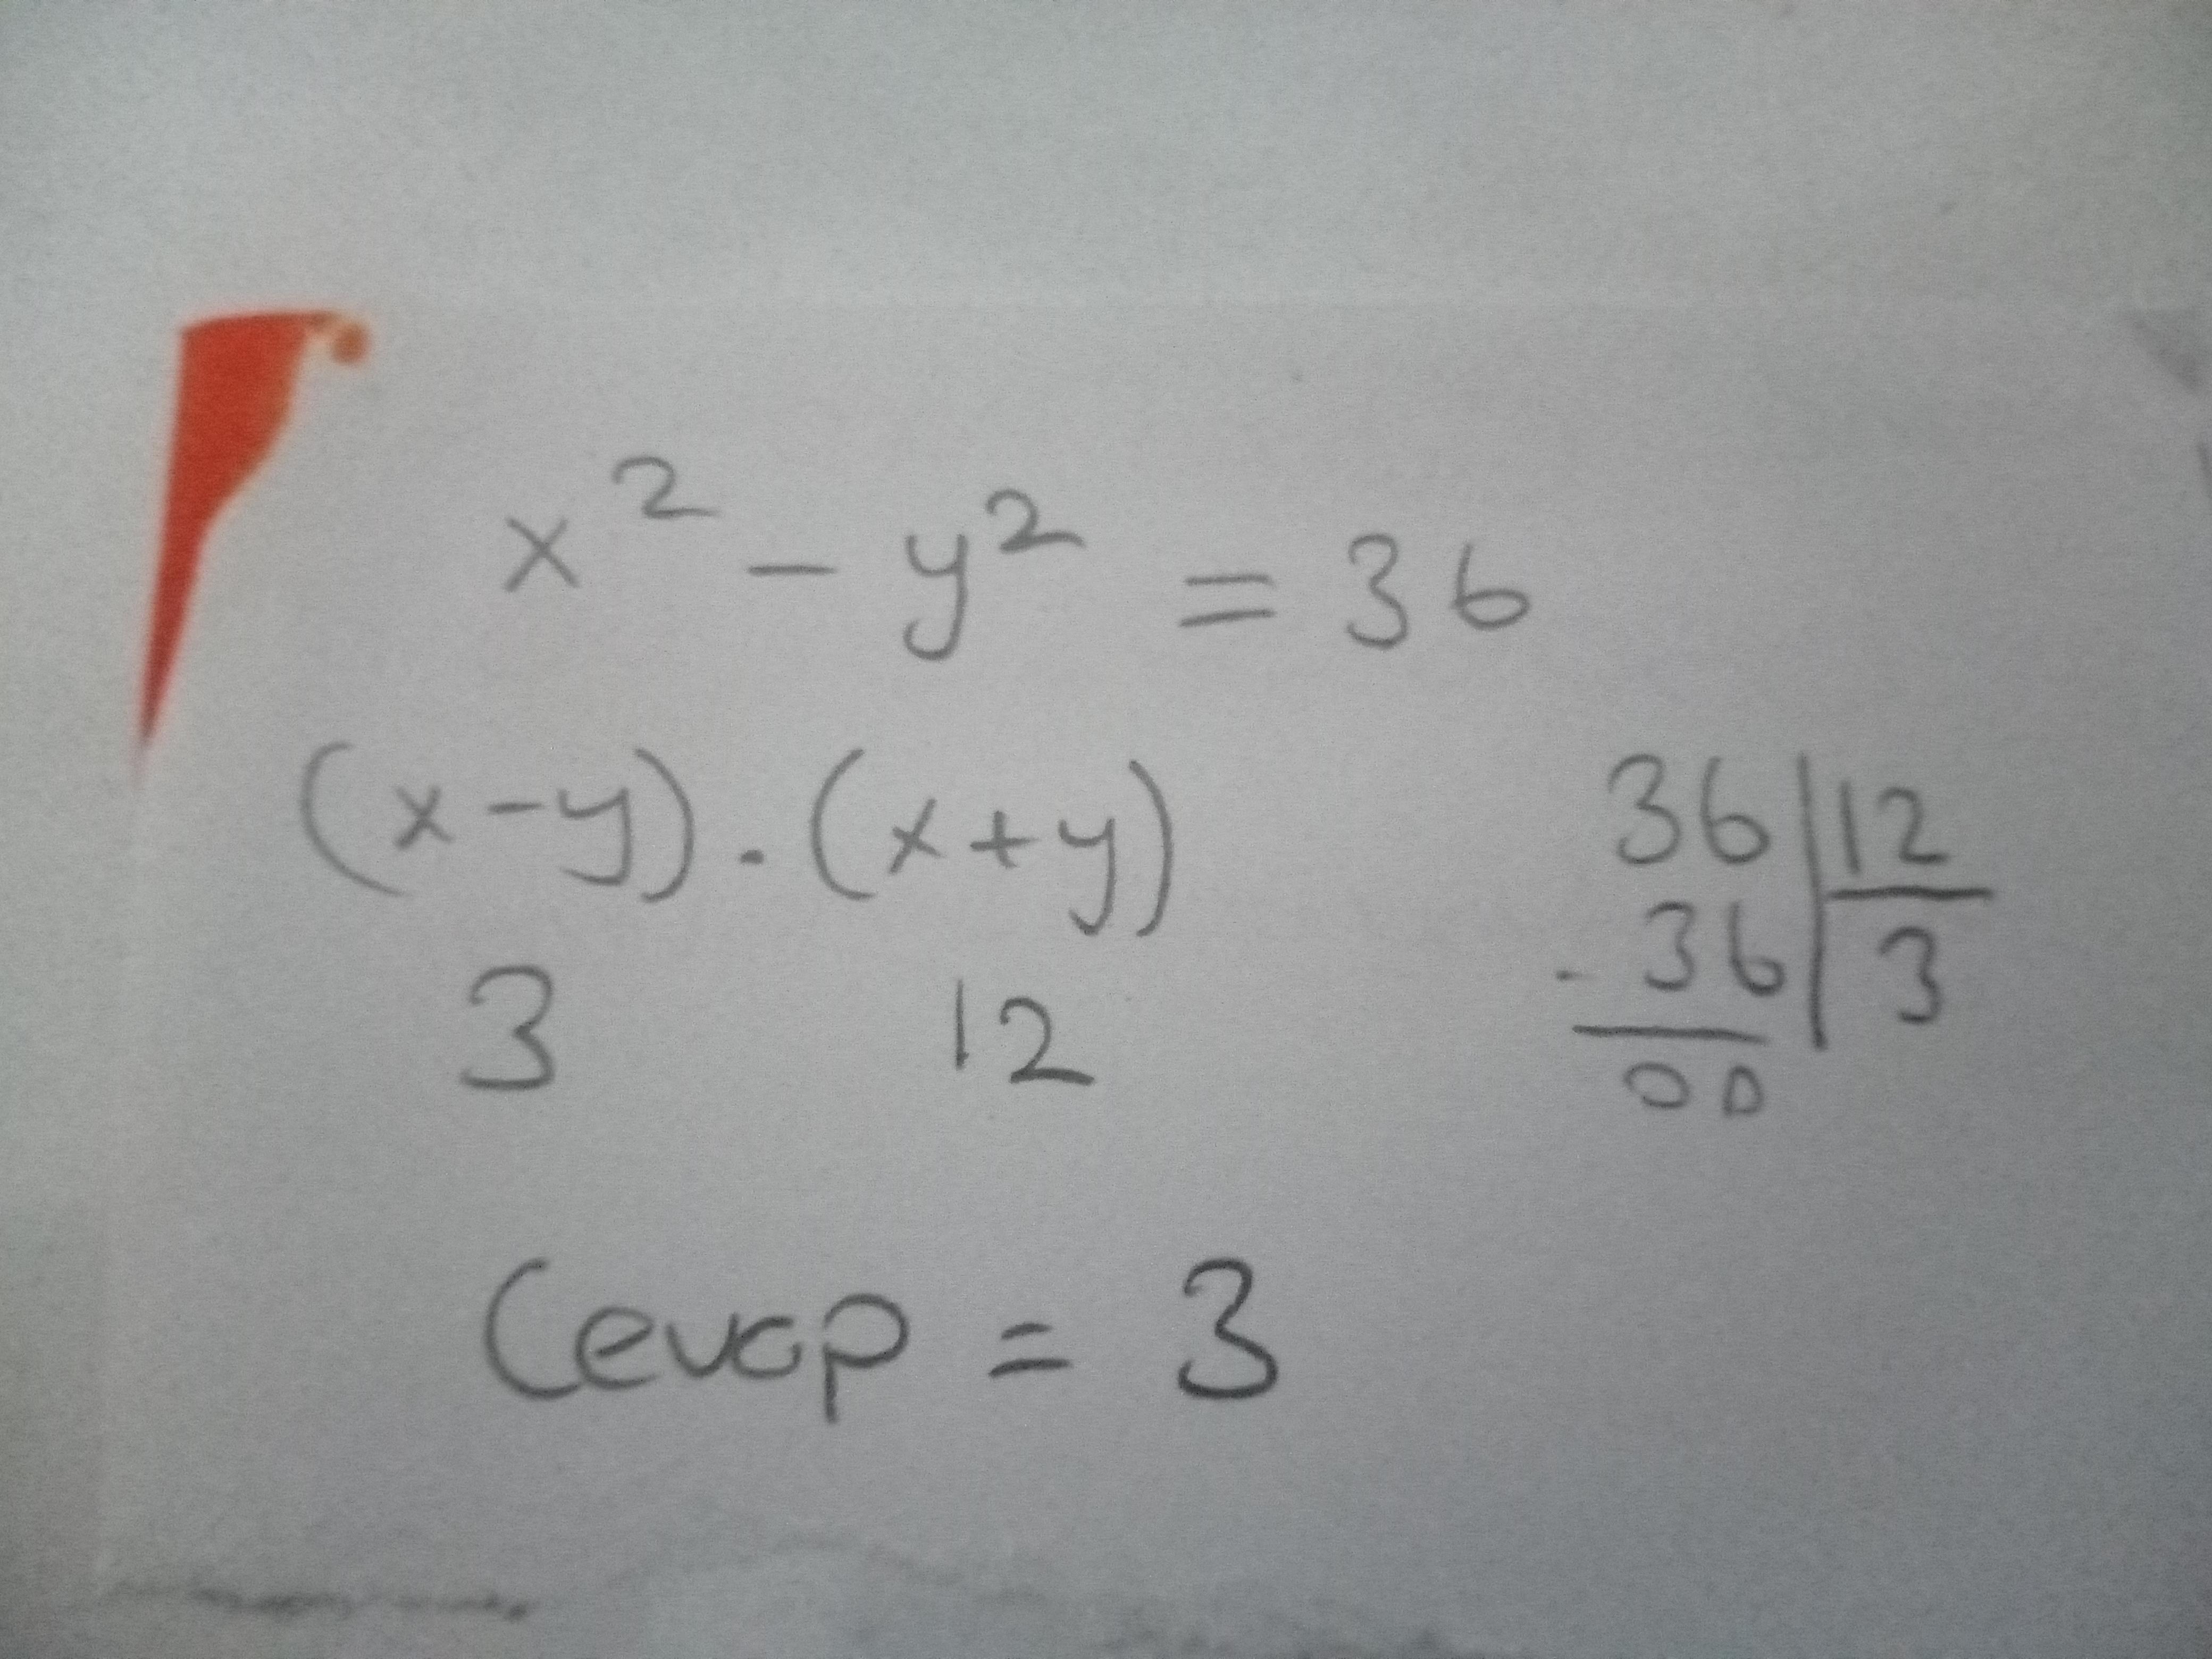 x² - y² = 36
(x-y).(x+y)
3 12
36 | 12
- 36 | 3
00
Cevap = 3